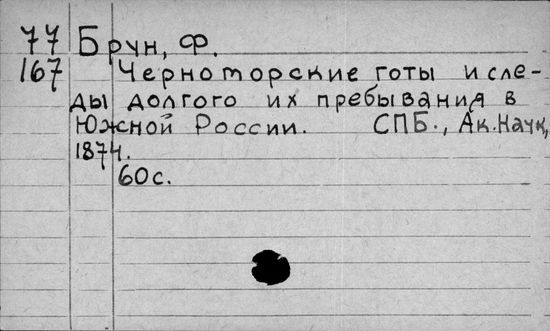 77 Брун, Ф.
167 Черноморские готы и сле-
ды долгого их пребывания в
Южной России. СПБ., Ак.Наук,
1874.
60с.